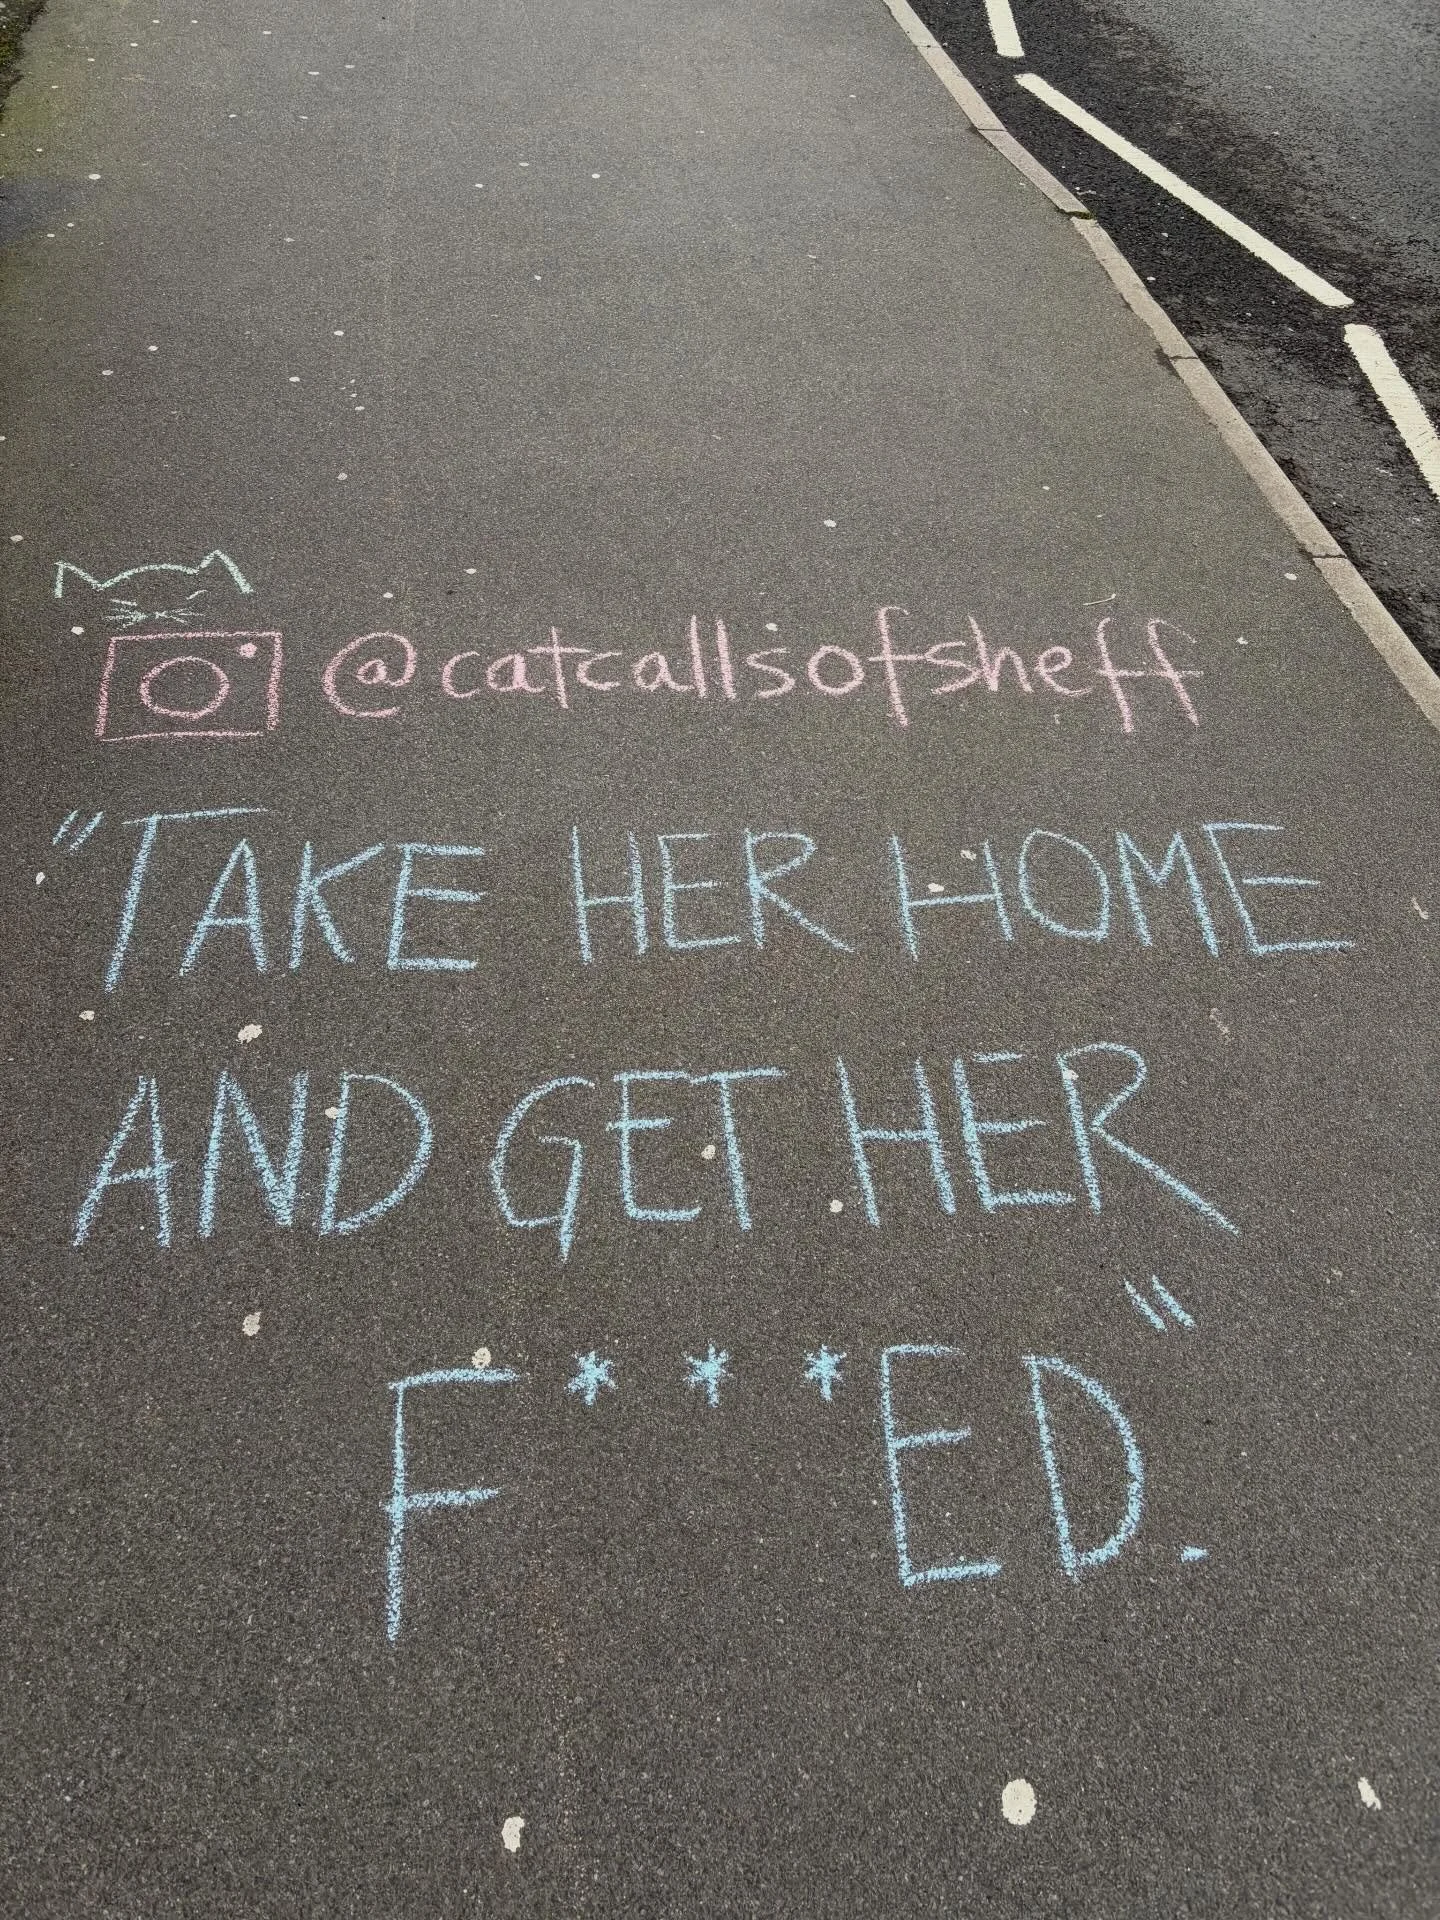 @catcallsofsheff
"TAKE HER HOME
AND GET HER
F***ED."